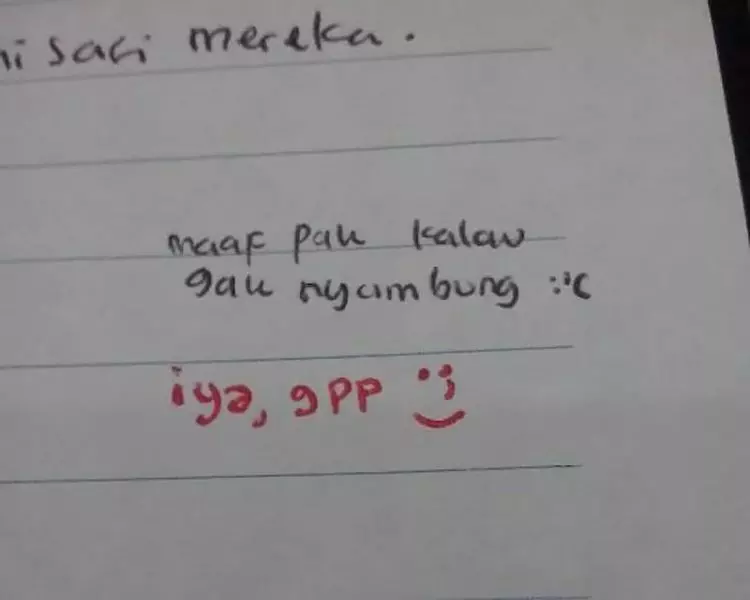 mereka.
maaf pak kalau
gak nyambung :'(
iya, gpp